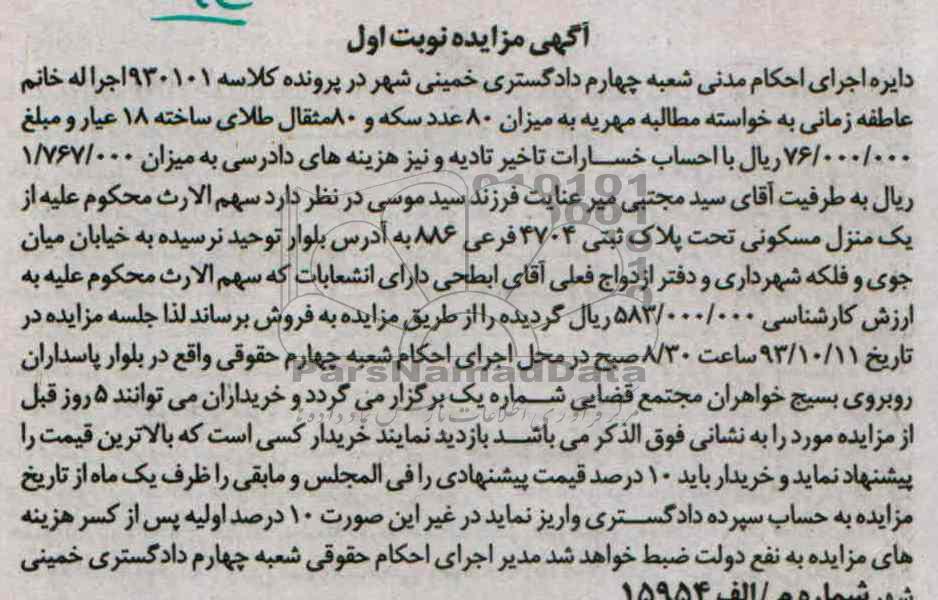 آگهی مزایده نوبت اول
دایره اجرای احکام مدنی شعبه چهارم دادگستری خمینی شهر در پرونده کلاسه ۹۳۰۱۰۱اجرا له خانم
عاطفه زمانی به خواسته مطالبه مهریه به میزان ۸۰ عدد سکه و ۸۰مثقال طلای ساخته ۱۸ عیار و مبلغ
۷۶/۰۰۰/۰۰۰ ریال با احساب خسارات تاخیر تادیه و نیز هزینه های دادرسی به میزان ۱/۷۶۷/۰۰۰
ریال به طرفیت آقای سید مجتبی میر عنایت فرزند سید موسی در نظر دارد سهم الارث محکوم علیه از
یک منزل مسکونی تحت پلاک ثبتی ۴۷۰۴ فرعی ۸۸۶ به آدرس بلوار توحید نرسیده به خیابان میان
جوی و فلکه شهرداری و دفتر ازدواج فعلی آقای ابطحی دارای انشعابات که سهم الارث محکوم علیه به
ارزش کارشناسی ۵۸۳/۰۰۰/۰۰۰ ریال گردیده را از طریق مزایده به فروش برساند لذا جلسه مزایده در
تاریخ ۹۳/۱۰/۱۱ ساعت ۸/۳۰ صبح در محل اجرای احکام شعبه چهارم حقوقی واقع در بلوار پاسداران
روبروی بسیج خواهران مجتمع قضایی شماره یک برگزار می گردد و خریداران می توانند ۵ روز قبل
از مزایده مورد را به نشانی فوق الذکر می باشد بازدید نمایند خریدار کسی است که بالاترین قیمت را
پیشنهاد نماید و خریدار باید ۱۰ درصد قیمت پیشنهادی را فی المجلس و مابقی را ظرف یک ماه از تاریخ
مزایده به حساب سپرده دادگستری واریز نماید در غیر این صورت ۱۰ درصد اولیه پس از کسر هزینه
های مزایده به نفع دولت ضبط خواهد شد مدیر اجرای احکام حقوقی شعبه چهارم دادگستری خمینی
شهر شماره م/الف ۱۵۹۵۴
ParsNamadData